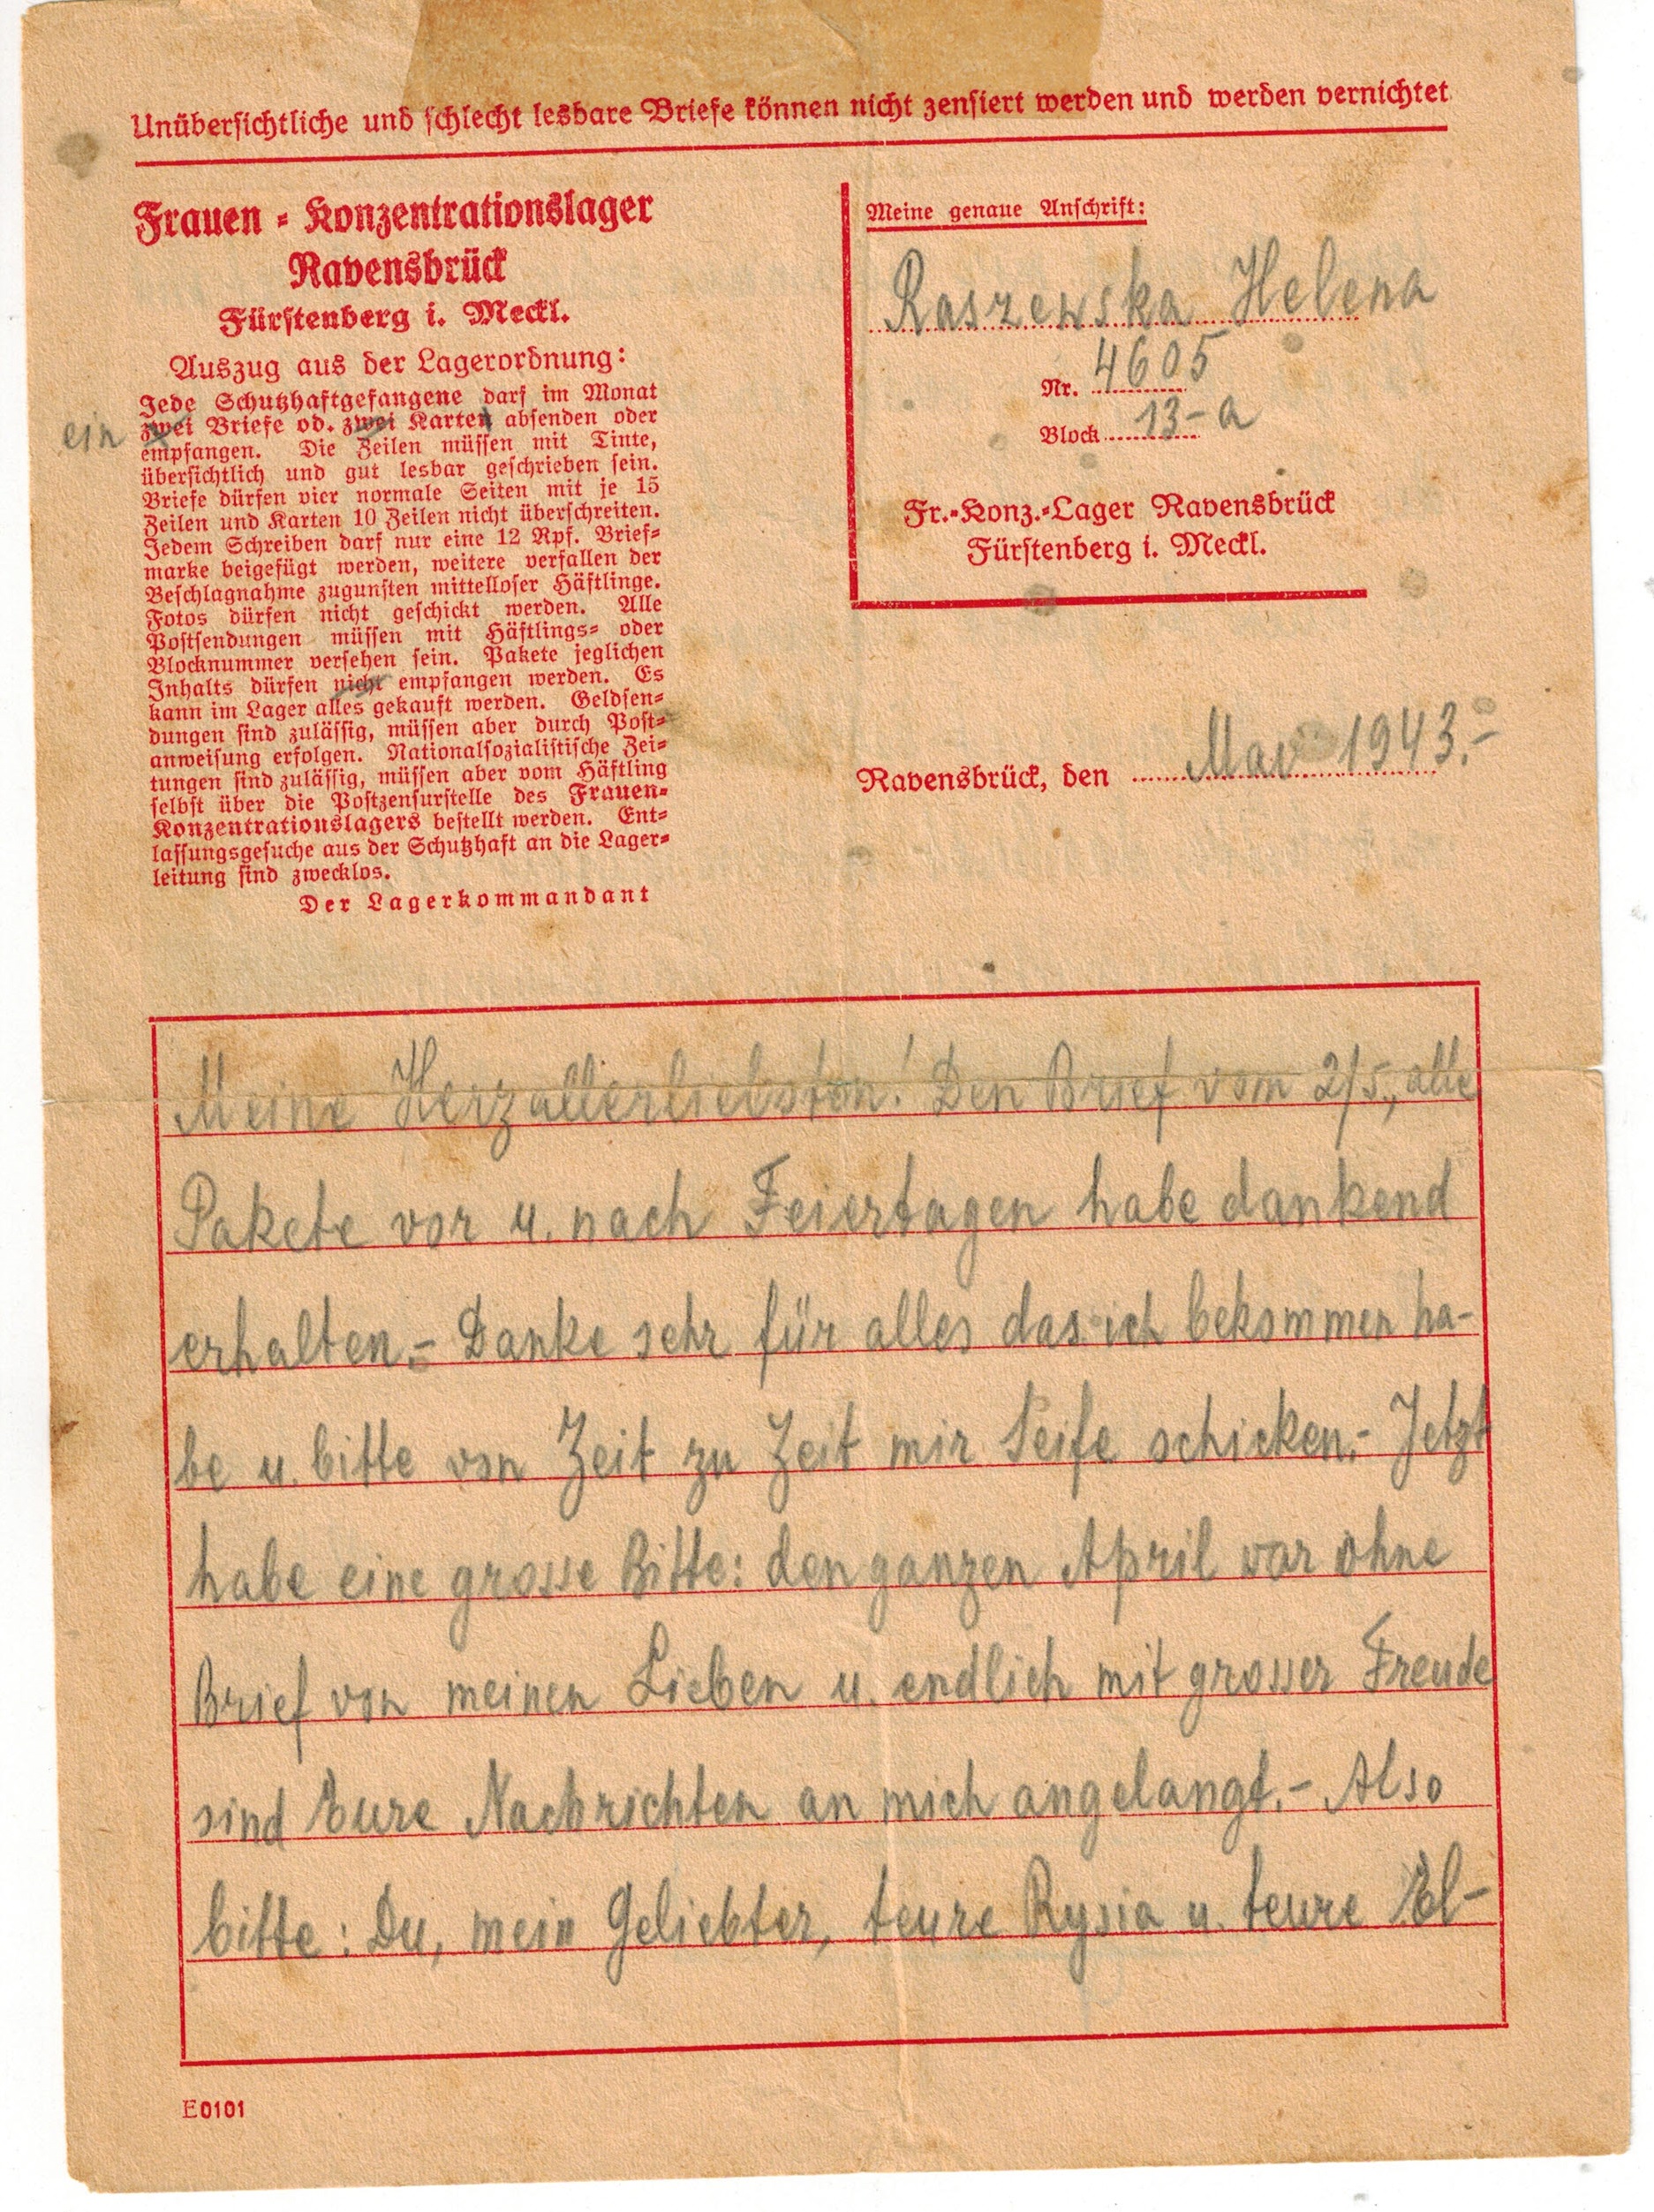 Unübersichtliche und schlecht lesbare Briefe können nicht zensiert werden und werden vernichtet
Frauen-Konzentrationslager
Ravensbrück
Fürstenberg i. Meckl.
Auszug aus der Lagerordnung:
Jede Schutzhaftgefangene darf im Monat
ein zwei Briefe od. zwei Karten absenden oder
empfangen. Die Zeilen müssen mit Tinte,
übersichtlich und gut lesbar geschrieben sein.
Briefe dürfen vier normale Seiten mit je 15
Zeilen und Karten 10 Zeilen nicht überschreiten.
Jedem Schreiben darf nur eine 12 Rpf. Brief-
marke beigefügt werden, weitere verfallen der
Beschlagnahme zugunsten mittelloser Häftlinge.
Fotos dürfen nicht geschickt werden. Alle
Postsendungen müssen mit Häftlings- oder
Blocknummer versehen sein. Pakete jeglichen
Inhalts dürfen nicht empfangen werden. Es
kann im Lager alles gekauft werden. Geldsen-
dungen sind zulässig, müssen aber durch Post-
anweisung erfolgen. Nationalsozialistische Zei-
tungen sind zulässig, müssen aber vom Häftling
selbst über die Postzensurstelle des Frauen-
Konzentrationslagers bestellt werden. Ent-
lassungsgesuche aus der Schutzhaft an die Lager-
leitung sind zwecklos.
Der Lagerkommandant
Meine genaue Anschrift:
Raszewska Helena
Nr. 4605
Block 13-a
Fr.-Konz.-Lager Ravensbrück
Fürstenberg i. Meckl.
Ravensbrück, den 1943.-
Meine Herzallerliebsten! Den Brief vom 2/5., alle
Pakete vor u. nach Feiertagen habe dankend
erhalten.- Danke sehr für alles das ich bekommen ha-
be u. bitte von Zeit zu Zeit mir Seife schicken.- Jetzt
habe eine grosse Bitte: den ganzen April war ohne
Brief von meinen Lieben u. endlich mit grosser Freude
sind Eure Nachrichten an mich angelangt.- Also
bitte: Du, mein Geliebter, teure Rysia u. teure El-
E0101